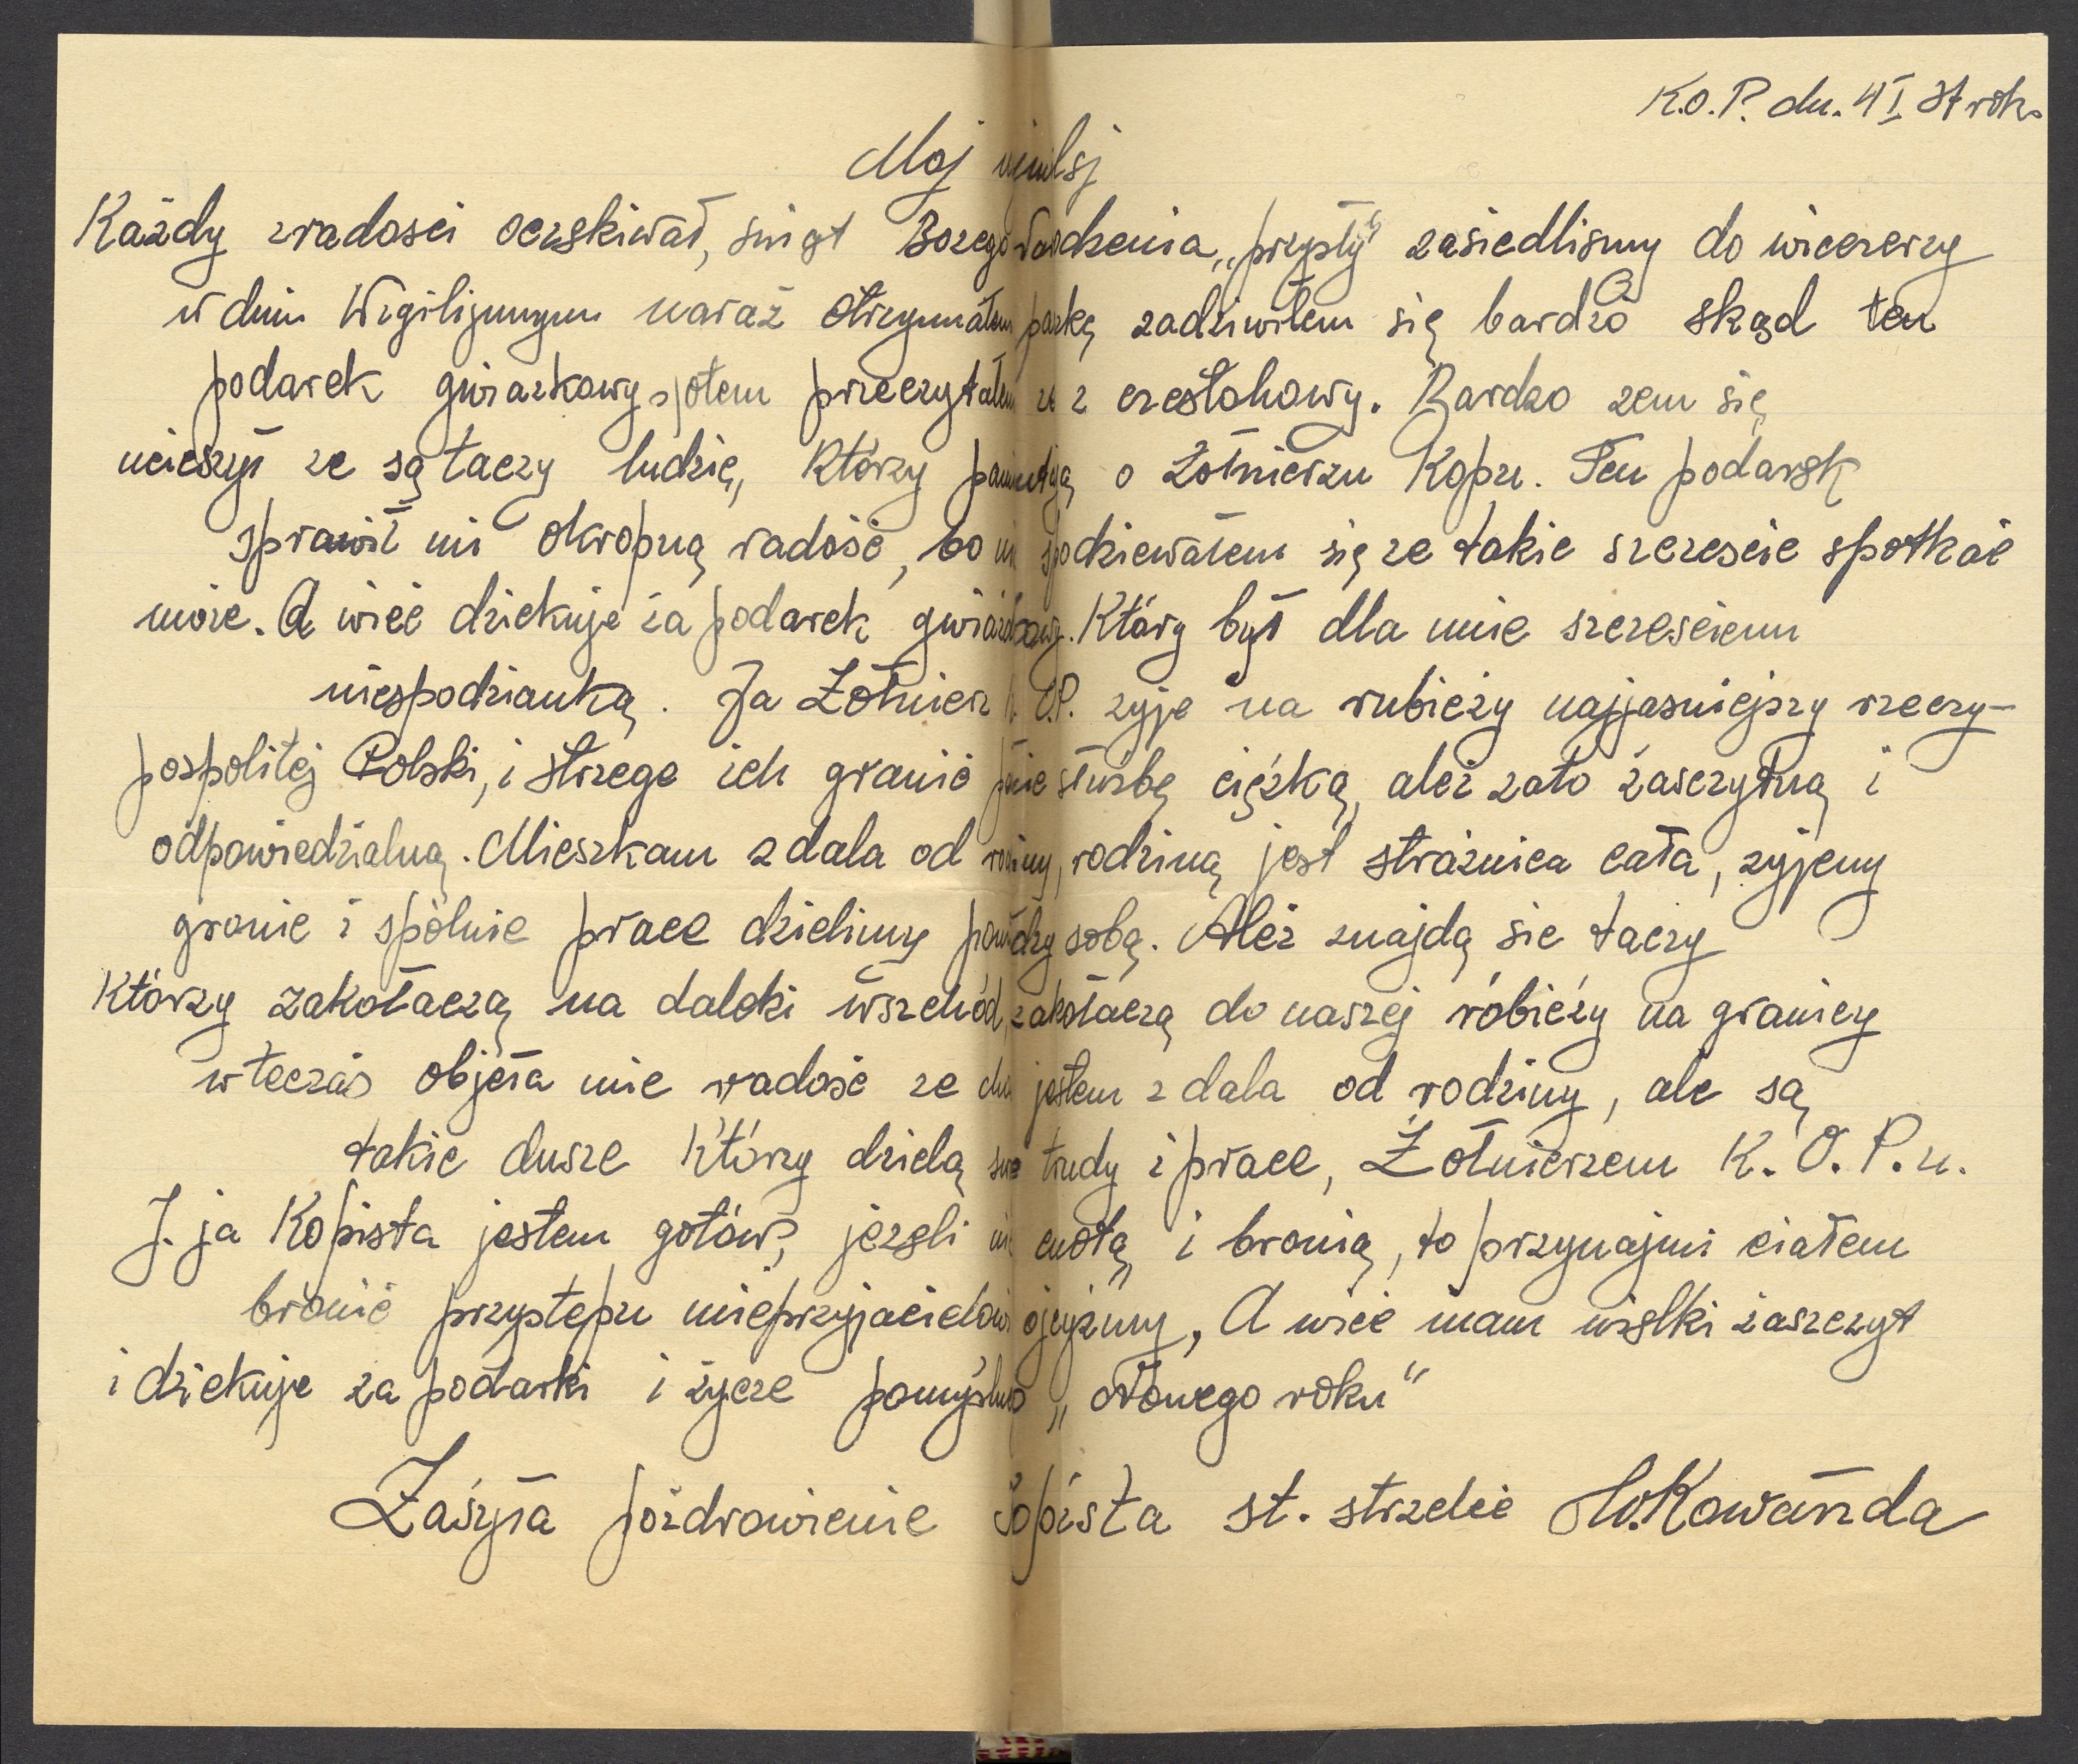 K.O.P. dn. 4 I 37 rok.
Moj
Każdy zradosci oczskiwał, swigt Bozego Narodzenia, „przysty" zasiedlismy do wieczerzy
w dniu Wigilijnym naraż otrzymałem pazkę zadziwiłem się bardzo skąd ten
podarek gwiazkowy, potem przeczytałem ze z czestohowy. Bardzo zem się
ucieszył ze są taczy ludzię, którzy pamintają o Żołnierzu Kopu. Ten podarek
sprawił mi okropną radość, bo ni spodziewałem się ze takie szczescie spotkać
może. A wieć dziekuje za podarek gwiazdkowy. Który był dla mnie szczesciem
niespodzianką. Ja Żołnierz K.O.P. zyje na rubieży najjasniejszy rzeczy-
pospolitej Polski, i strzege ich granić służbę ciężką, aleź zato zasczytną i
odpowiedzialną. Mieszkam zdala od rodziny, rodziną jest strażnica cała, zyjemy
gronie i spólnie prace dzielimy pomidzy sobą. Aleź znajdą sie taczy
którzy zakołaczą na daleki wszchód, zakołaczą do naszej róbieży na granicy
wteczas objeła mie radość ze choć jestem zdala od rodziny, ale są
takie dusze którzy dzielą swe trudy i prace, Żołnierzem K.O.P.u.
J. ja Kopista jestem gotów, jezeli nie cnotą i bronią, to przynajmi ciałem
bronić przystepu nieprzyjacielowi ojczyzny, A wieć mam wielki zaszczyt
i dziekuje za podarki i życze pomyślno „Nowego roku"
Zasyła pozdrowienie Kopista st. strzeleć W. Kowańda